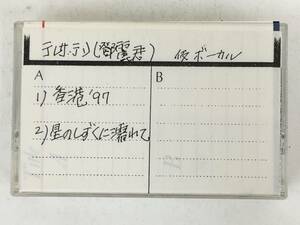 テレサ・テン(鄧麗君) 仮ボーカル
A
B
1) 香港'97
2) 星のしずくに濡れて